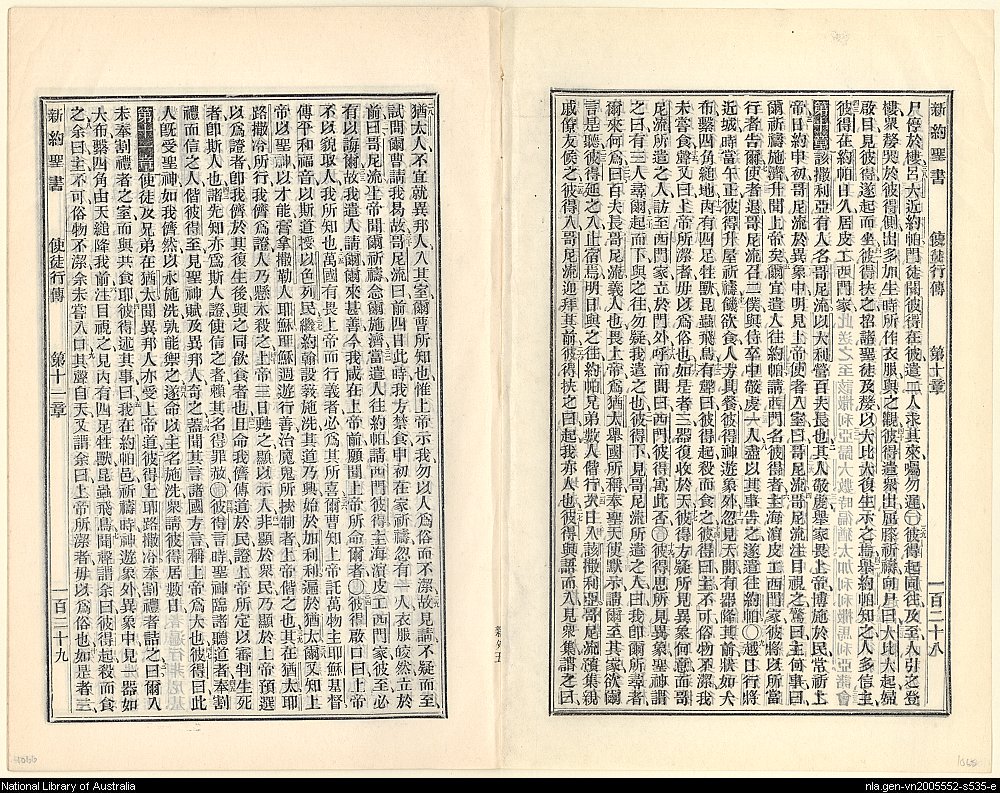 新約聖書 使徒行傳 第十章 一百二十八
尸停於樓呂大近約帕門徒聞彼得在彼遣二人求其來囑勿遲彼得起同往及至人引之登
樓衆嫠哭於彼得側出多加生時所作衣服與之觀彼得遣衆出屈膝祈禱向尸曰大比大起婦
啟目見彼得遂起而坐彼得扶之招諸聖徒及嫠以大比大復生示之舉約帕知之人多信主
彼得在約帕日久居皮工西門家
第十章該撒利亞有人名哥尼流以大利營百夫長也其人敬虔舉家畏上帝博施於民常祈上
帝日約申初哥尼流於異象中明見上帝使者入室曰哥尼流哥尼流注目視之驚曰主何事曰
爾祈禱施濟升聞上帝矣爾宜遣人往約帕請西門名彼得者主海濱皮工西門家彼將以所當
行者告爾使者退哥尼流召二僕與侍卒中敬虔者一人盡以其事告之遂遣往約帕○越日行將
近城時當午正彼得升屋祈禱饑欲食人方具餐彼得神遊象外忽見天開有器降其前狀如大
布繫四角縋地內有四足牲獸昆蟲飛鳥有聲曰彼得起殺而食之彼得曰主不可俗物不潔我
未嘗食聲又曰上帝所潔者毋以爲俗也如是者三器復收於天彼得方疑所見異象何意而哥
尼流所遣之人訪至西門家立於門外呼而問曰西門彼得寓此否彼得思所見異象聖神謂
之曰有三人尋爾起而下與之往勿疑我遣之也彼得下見哥尼流所遣之人曰我卽爾所尋者
爾來何爲曰百夫長哥尼流義人也畏上帝爲猶太舉國所稱奉聖天使默示請爾至其家欲爾
言是聽彼得延之入止宿焉明日與之往約帕兄弟數人偕行次日入該撒利亞哥尼流集親
戚僚友候之彼得入哥尼流迎拜其前彼得扶之曰起我亦人也彼得與語而入見衆集謂之曰
猶太人不宜就異邦人入其室爾曹所知也惟上帝示我勿以人爲俗而不潔故見請不疑而至
試問爾曹請我曷故哥尼流曰前四日此時我方禁食申初在家祈禱忽有一人衣服皎然立於
前曰哥尼流上帝聞爾祈禱念爾施濟當遣人往約帕請西門彼得主海濱皮工西門家彼至必
有以誨爾故我遣人請爾爾來甚善今我咸在上帝前願聞上帝所命爾者○彼得啟口曰上帝
不以貌取人我所知也萬國有畏上帝而行義者必爲其所喜爾曹知上帝託萬物主耶穌基督
傳平和福音以斯道授以色列民繼約翰設教施洗其道乃興始於加利利遍於猶太爾又知上
帝以聖神以才能膏拿撒勒人耶穌耶穌週遊行善治魔鬼所挾制者上帝偕之也其在猶太耶
路撒冷所行我儕爲證人乃懸木殺之上帝三日甦之顯以示人非顯於衆民乃顯於上帝預選
以爲證者卽我儕於其復生後與之同飲食者也且命我儕傳道於民證上帝所定以審判生死
者卽斯人也諸先知亦爲斯人證使信之者賴其名得罪赦○彼得言時聖神臨諸聽道者奉割
禮而信之人偕彼得至見聖神賦及異邦人奇之蓋聞其言諸國方言稱上帝爲大也彼得曰此
人既受聖神如我儕然以水施洗孰能禦之遂命以主名施洗衆請彼得居數日
第十一章使徒及兄弟在猶太聞異邦人亦受上帝道彼得上耶路撒冷奉割禮者詰之曰爾入
未奉割禮者之室而與共食耶彼得述其事曰我在約帕邑祈禱時神遊象外異象中見一器如
大布繫四角由天縋降我前注目視之見內有四足牲獸昆蟲飛鳥聞聲謂余曰彼得起殺而食
之余曰主不可俗物不潔余未嘗入口其聲自天又謂余曰上帝所潔者毋以爲俗也如是者三
新約聖書 使徒行傳 第十一章 一百二十九
National Library of Australia
nla.gen-vn2005552-s535-e